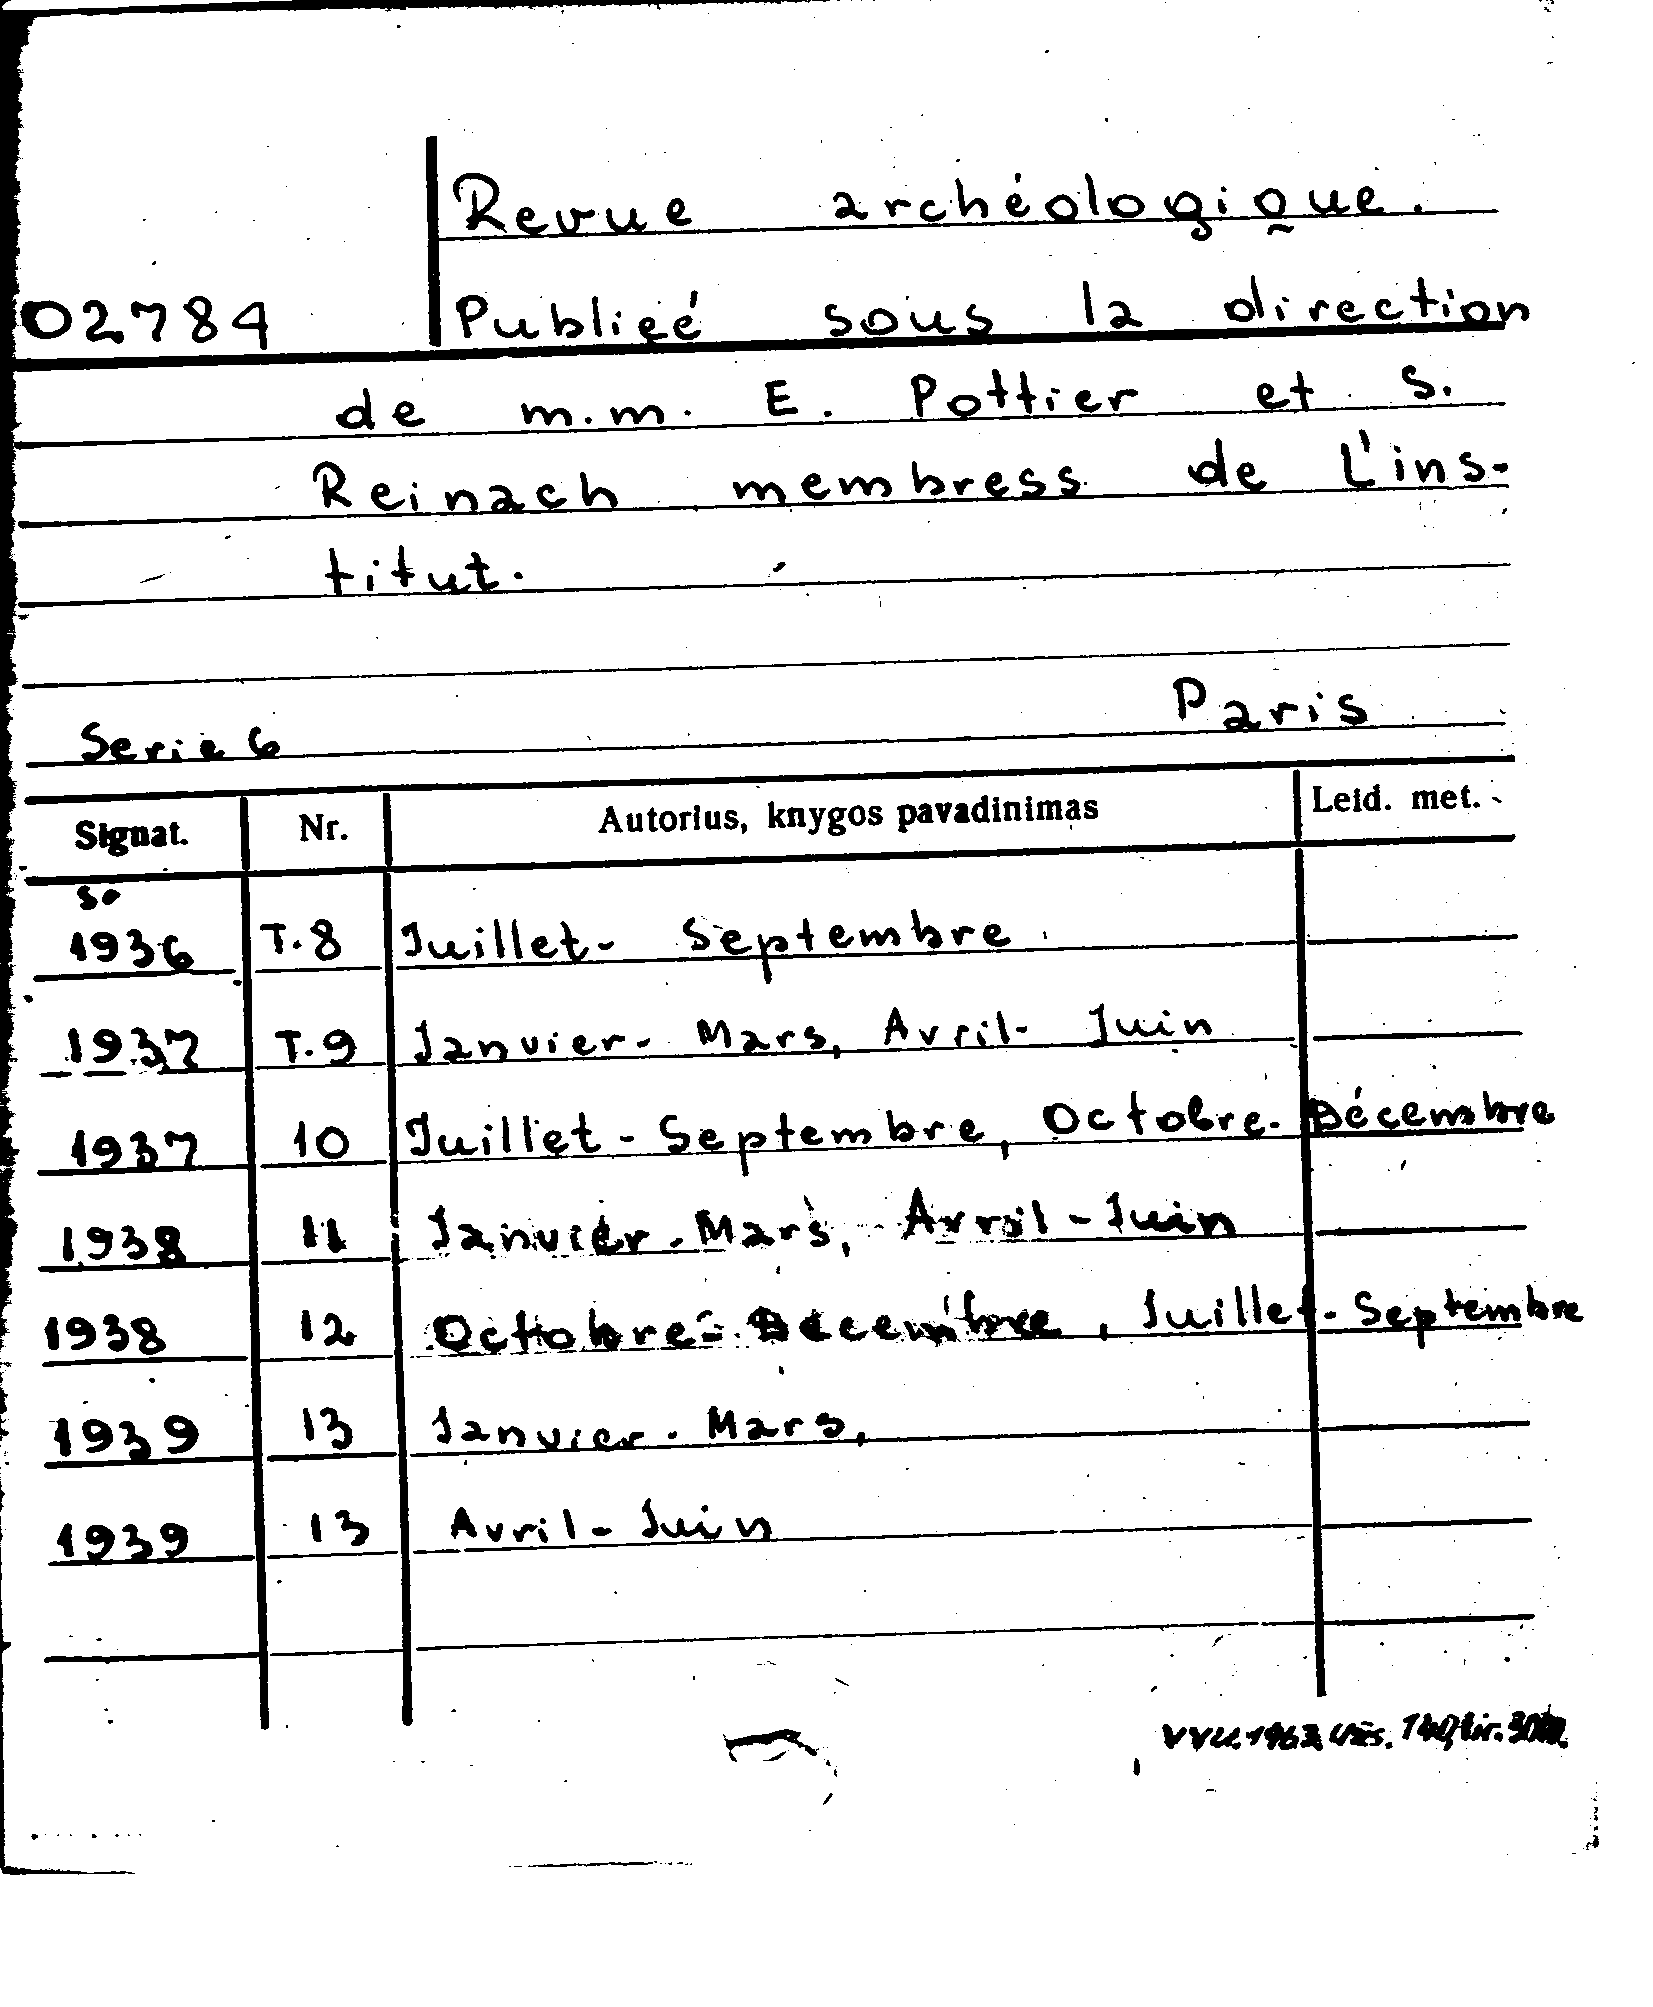 Revue archéologique.
02784 Publieé sous la direction
de m.m. E. Pottier et S.
Reinach membress de L'ins-
titut.
Paris
Serie 6
Signat. Nr. Autorius, knygos pavadinimas Leid. met.
so
1936 T.8 Juillet- Septembre
1937 T.9 Janvier- Mars, Avril- Juin
1937 10 Juillet- Septembre, Octobre- Décembre
1938 11 Janvier- Mars, Avril- Juin
1938 12 Octobre- Décembre, Juillet- Septembre
1939 13 Janvier- Mars,
1939 13 Avril- Juin
VVU. 1963. Užs. tir.